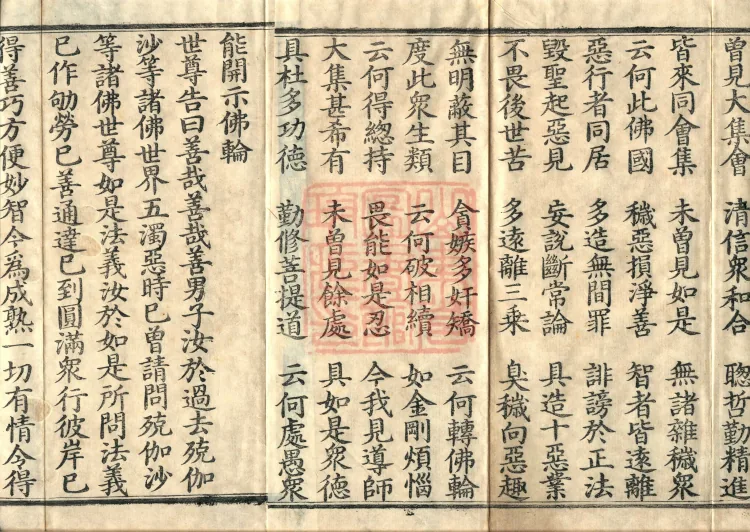 曾見大集會 清信衆和合 聰哲勤精進
皆來同會集 未曾見如是 無諸雜穢衆
云何此佛國 穢惡損淨善 智者皆遠離
惡行者同居 多造無間罪 誹謗於正法
毀聖起惡見 妄說斷常論 具造十惡業
不畏後世苦 多遠離三乘 臭穢向惡趣
無明蔽其目 貪嫉多奸矯 云何轉佛輪
度此衆生類 云何破相續 如金剛煩惱
云何得緫持 畏能如是忍 今我見導師
大集甚希有 未曾見餘處 具如是衆德
具杜多功德 勤修菩提道 云何處愚衆
能開示佛輪
世尊告曰善哉善哉善男子汝於過去殑伽
沙等諸佛世界五濁惡時已曾請問殑伽沙
等諸佛世尊如是法義汝於如是所問法義
已作劬勞已善通達已到圓滿衆行彼岸已
得善巧方便妙智今為成熟一切有情令得